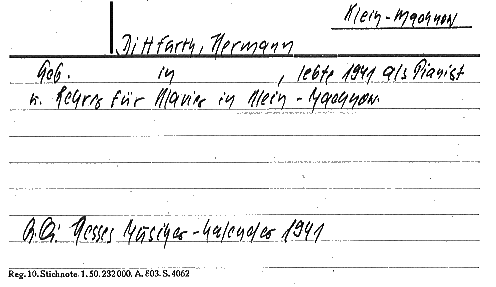 Klein-Machnow
Dittfarth, Hermann
Geb. in , lebte 1941 als Pianist
u. Lehrer für Klavier in Klein-Machnow
Hesses Musiker-Kalender 1941
Reg. 10. Stichnote. 1. 50. 232000. A. 803. S. 4062